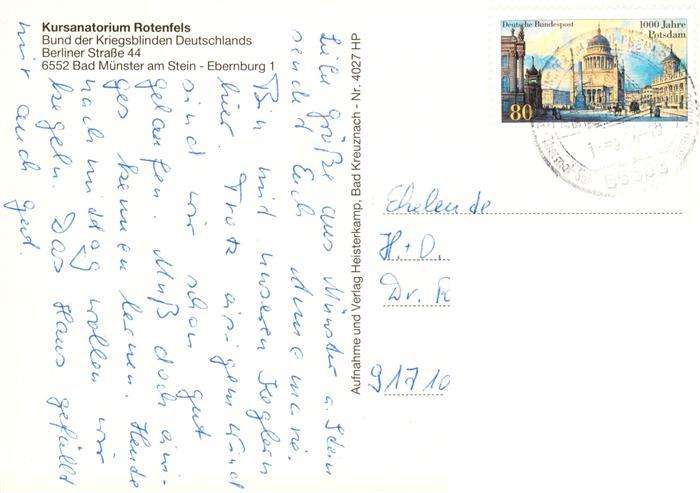 Kursanatorium Rotenfels
Bund der Kriegsblinden Deutschlands
Berliner Straße 44
6552 Bad Münster am Stein - Ebernburg 1
Liebe Grüße aus Münster a. Stein
sendet Euch Annemarie.
Bin mit unseren Keglern
hier. Trotz eisigem Wind
sind wir schon gut
gelaufen. Muß doch eini-
ges kennen lernen. Heute
nachmittag wollen wir
kegeln. Das Haus gefällt
mir auch gut.
Aufnahme und Verlag Heisterkamp, Bad Kreuznach - Nr. 4027 HP
Deutsche Bundespost
1000 Jahre
Potsdam
80
Eheleute
H. + D.
Dr. R
91710